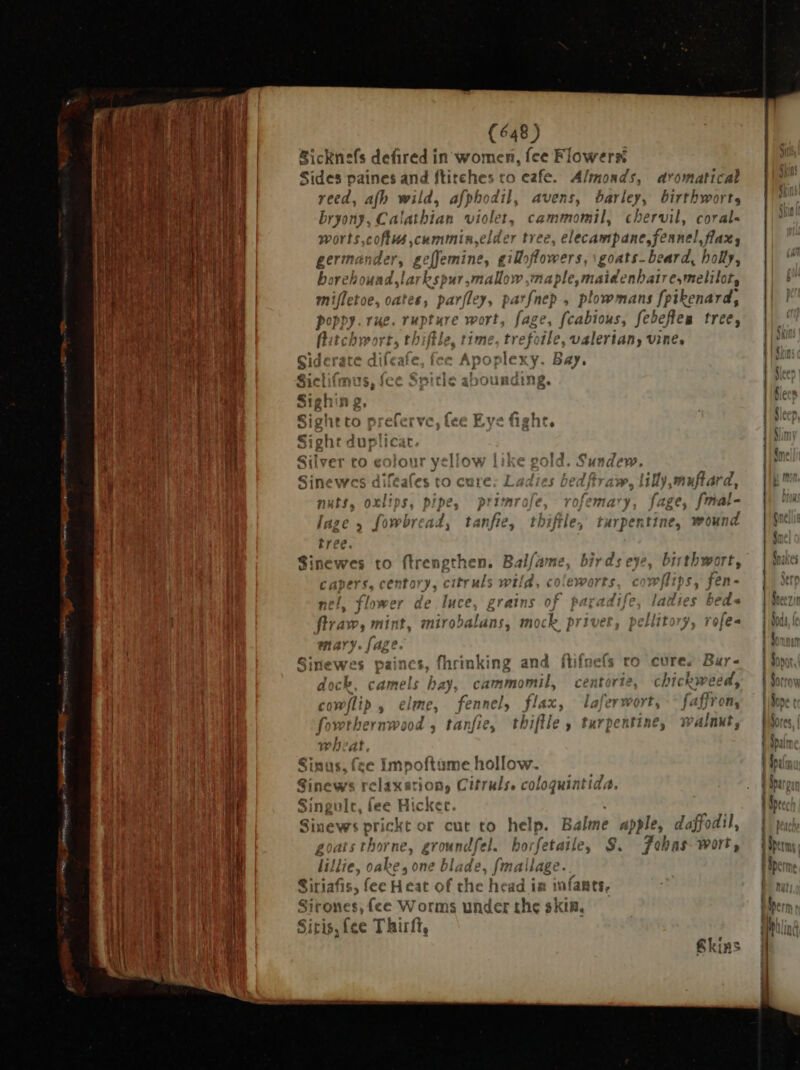 (648)
Sicknefs defired in women, fee Flowers
Sides paines and ftitches to eafe. Almonds, aromatical
reed, afh wild, afphodil, avens, barley, birthwort,
bryony, Calathian violet, cammomil, chervil, coral-
worts,coftus,cummin,elder tree, elecampane,fennel,flax,
germander, geffemine, gilloflowers, goats-beard, holly,
horehound,larkspur,mallow,maple,maidenhaire,melilot,
miffletoe, oates, parfley, parfnep, plowmans fpikenard,
poppy. rue. rupture wort, fage, fcabious, febeftes tree,
ftitchwort, thiftle, time, trefoile, valerian, vine.
Siderate difeafe, fee Apoplexy. Bay.
Sielifmus, fee Spitle abounding.
Sighing.
Sight to preferve, fee Eye fight.
Sight duplicat.
Silver to colour yellow like gold. Sundew.
Sinewes difeafes to cure: Ladies bedftraw, lilly,muftard,
nuts, oxlips, pipe, primrofe, rofemary, fage, fmal-
lage, fowbread, tanfie, thiftle, turpentine, wound
tree.
Sinewes to ftrengthen. Balfame, birds eye, birthwort,
capers, centory, citruls wild, coleworts, cowflips, fen-
nel, flower de luce, grains of paradife, ladies bed-
ftraw, mint, mirobalans, mock privet, pellitory, rofe-
mary. fage.
Sinewes paines, fhrinking and ftifnefs to cure. Bur-
dock, camels hay, cammomil, centorie, chickweed,
cowflip, elme, fennel, flax, laferwort, faffron,
fowthernwood, tanfie, thiftle, turpentine, walnut,
wheat.
Sinus, fee Impoftume hollow.
Sinews relaxation, Citruls. coloquintida.
Singult, fee Hicket.
Sinews prickt or cut to help. Balme apple, daffodil,
goats thorne, groundfel. horfetaile, S. Johns wort,
lillie, oake, one blade, fmallage.
Siriafis, fee Heat of the head in infants,
Sirones, fee Worms under the skin.
Sitis, fee Thirft,
Skins